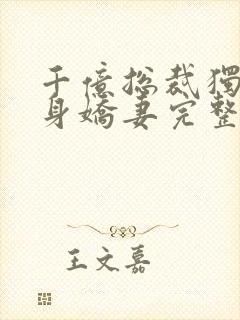 千億總裁獨
身嬌妻完整
王文嘉